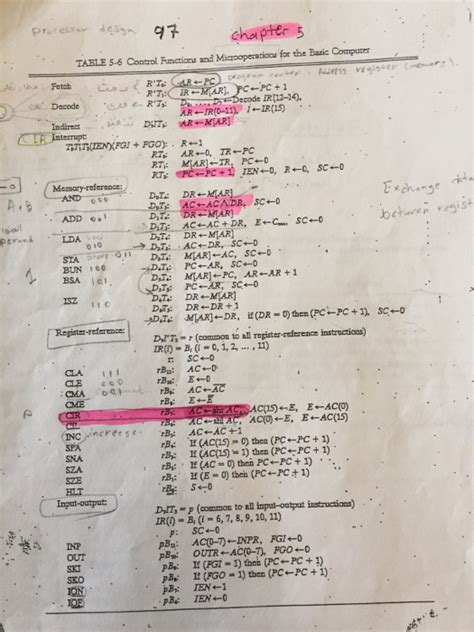 Processor design 97 chapter 5
TABLE 5-6 Control Functions and Microoperations for the Basic Computer
Fetch R'T₀: AR←PC
R'T₁: IR←M[AR], PC←PC + 1
Decode R'T₂: D₀, ..., D₇←Decode IR(12–14),
AR←IR(0–11), I←IR(15)
Indirect D₇'IT₃: AR←M[AR]
Interrupt:
T₀'T₁'T₂'(IEN)(FGI + FGO): R←1
RT₀: AR←0, TR←PC
RT₁: M[AR]←TR, PC←0
RT₂: PC←PC + 1, IEN←0, R←0, SC←0
Memory-reference:
AND 000 D₀T₄: DR←M[AR]
D₀T₅: AC←AC∧DR, SC←0
ADD 001 D₁T₄: DR←M[AR]
D₁T₅: AC←AC + DR, E←Cout, SC←0
LDA D₂T₄: DR←M[AR]
010 D₂T₅: AC←DR, SC←0
STA 011 D₃T₄: M[AR]←AC, SC←0
BUN 100 D₄T₄: PC←AR, SC←0
BSA 101 D₅T₄: M[AR]←PC, AR←AR + 1
D₅T₅: PC←AR, SC←0
ISZ 110 D₆T₄: DR←M[AR]
D₆T₅: DR←DR + 1
D₆T₆: M[AR]←DR, if (DR = 0) then (PC←PC + 1), SC←0
Exchange data
between regist
Register-reference:
D₇I'T₃ = r (common to all register-reference instructions)
IR(i) = Bᵢ (i = 0, 1, 2, ..., 11)
r: SC←0
CLA 111 rB₁₁: AC←0
CLE 000 rB₁₀: E←0
CMA rB₉: AC←A̅C̅
CME rB₈: E←E̅
CIR rB₇: AC←shr AC, AC(15)←E, E←AC(0)
CIL rB₆: AC←shl AC, AC(0)←E, E←AC(15)
INC increase rB₅: AC←AC + 1
SPA rB₄: If (AC(15) = 0) then (PC←PC + 1)
SNA rB₃: If (AC(15) = 1) then (PC←PC + 1)
SZA rB₂: If (AC = 0) then (PC←PC + 1)
SZE rB₁: If (E = 0) then (PC←PC + 1)
HLT rB₀: S←0
Input-output:
D₇IT₃ = p (common to all input-output instructions)
IR(i) = Bᵢ (i = 6, 7, 8, 9, 10, 11)
p: SC←0
INP pB₁₁: AC(0–7)←INPR, FGI←0
OUT pB₁₀: OUTR←AC(0–7), FGO←0
SKI pB₉: If (FGI = 1) then (PC←PC + 1)
SKO pB₈: If (FGO = 1) then (PC←PC + 1)
ION pB₇: IEN←1
IOF pB₆: IEN←0